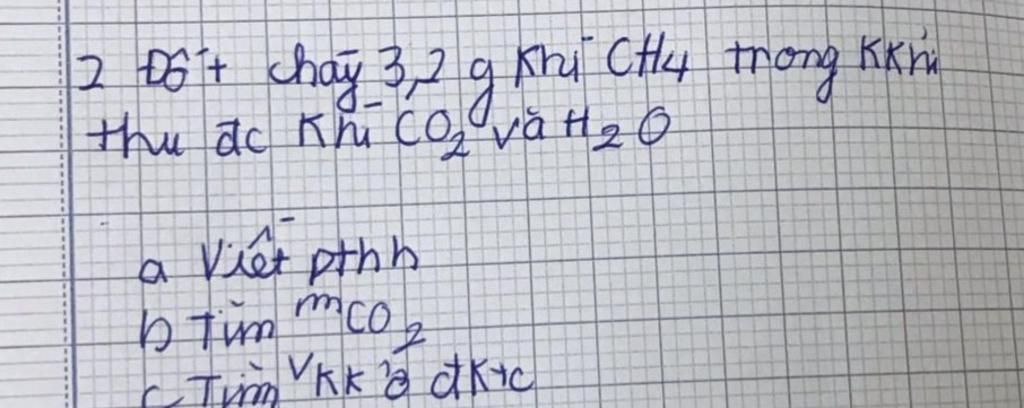 2 Đốt cháy 3,2 g khí CH4 trong kkhí
thu đc khí CO2 và H2O
a Viết pthh
b Tìm mCO2
c Tìm VKK ở đktc